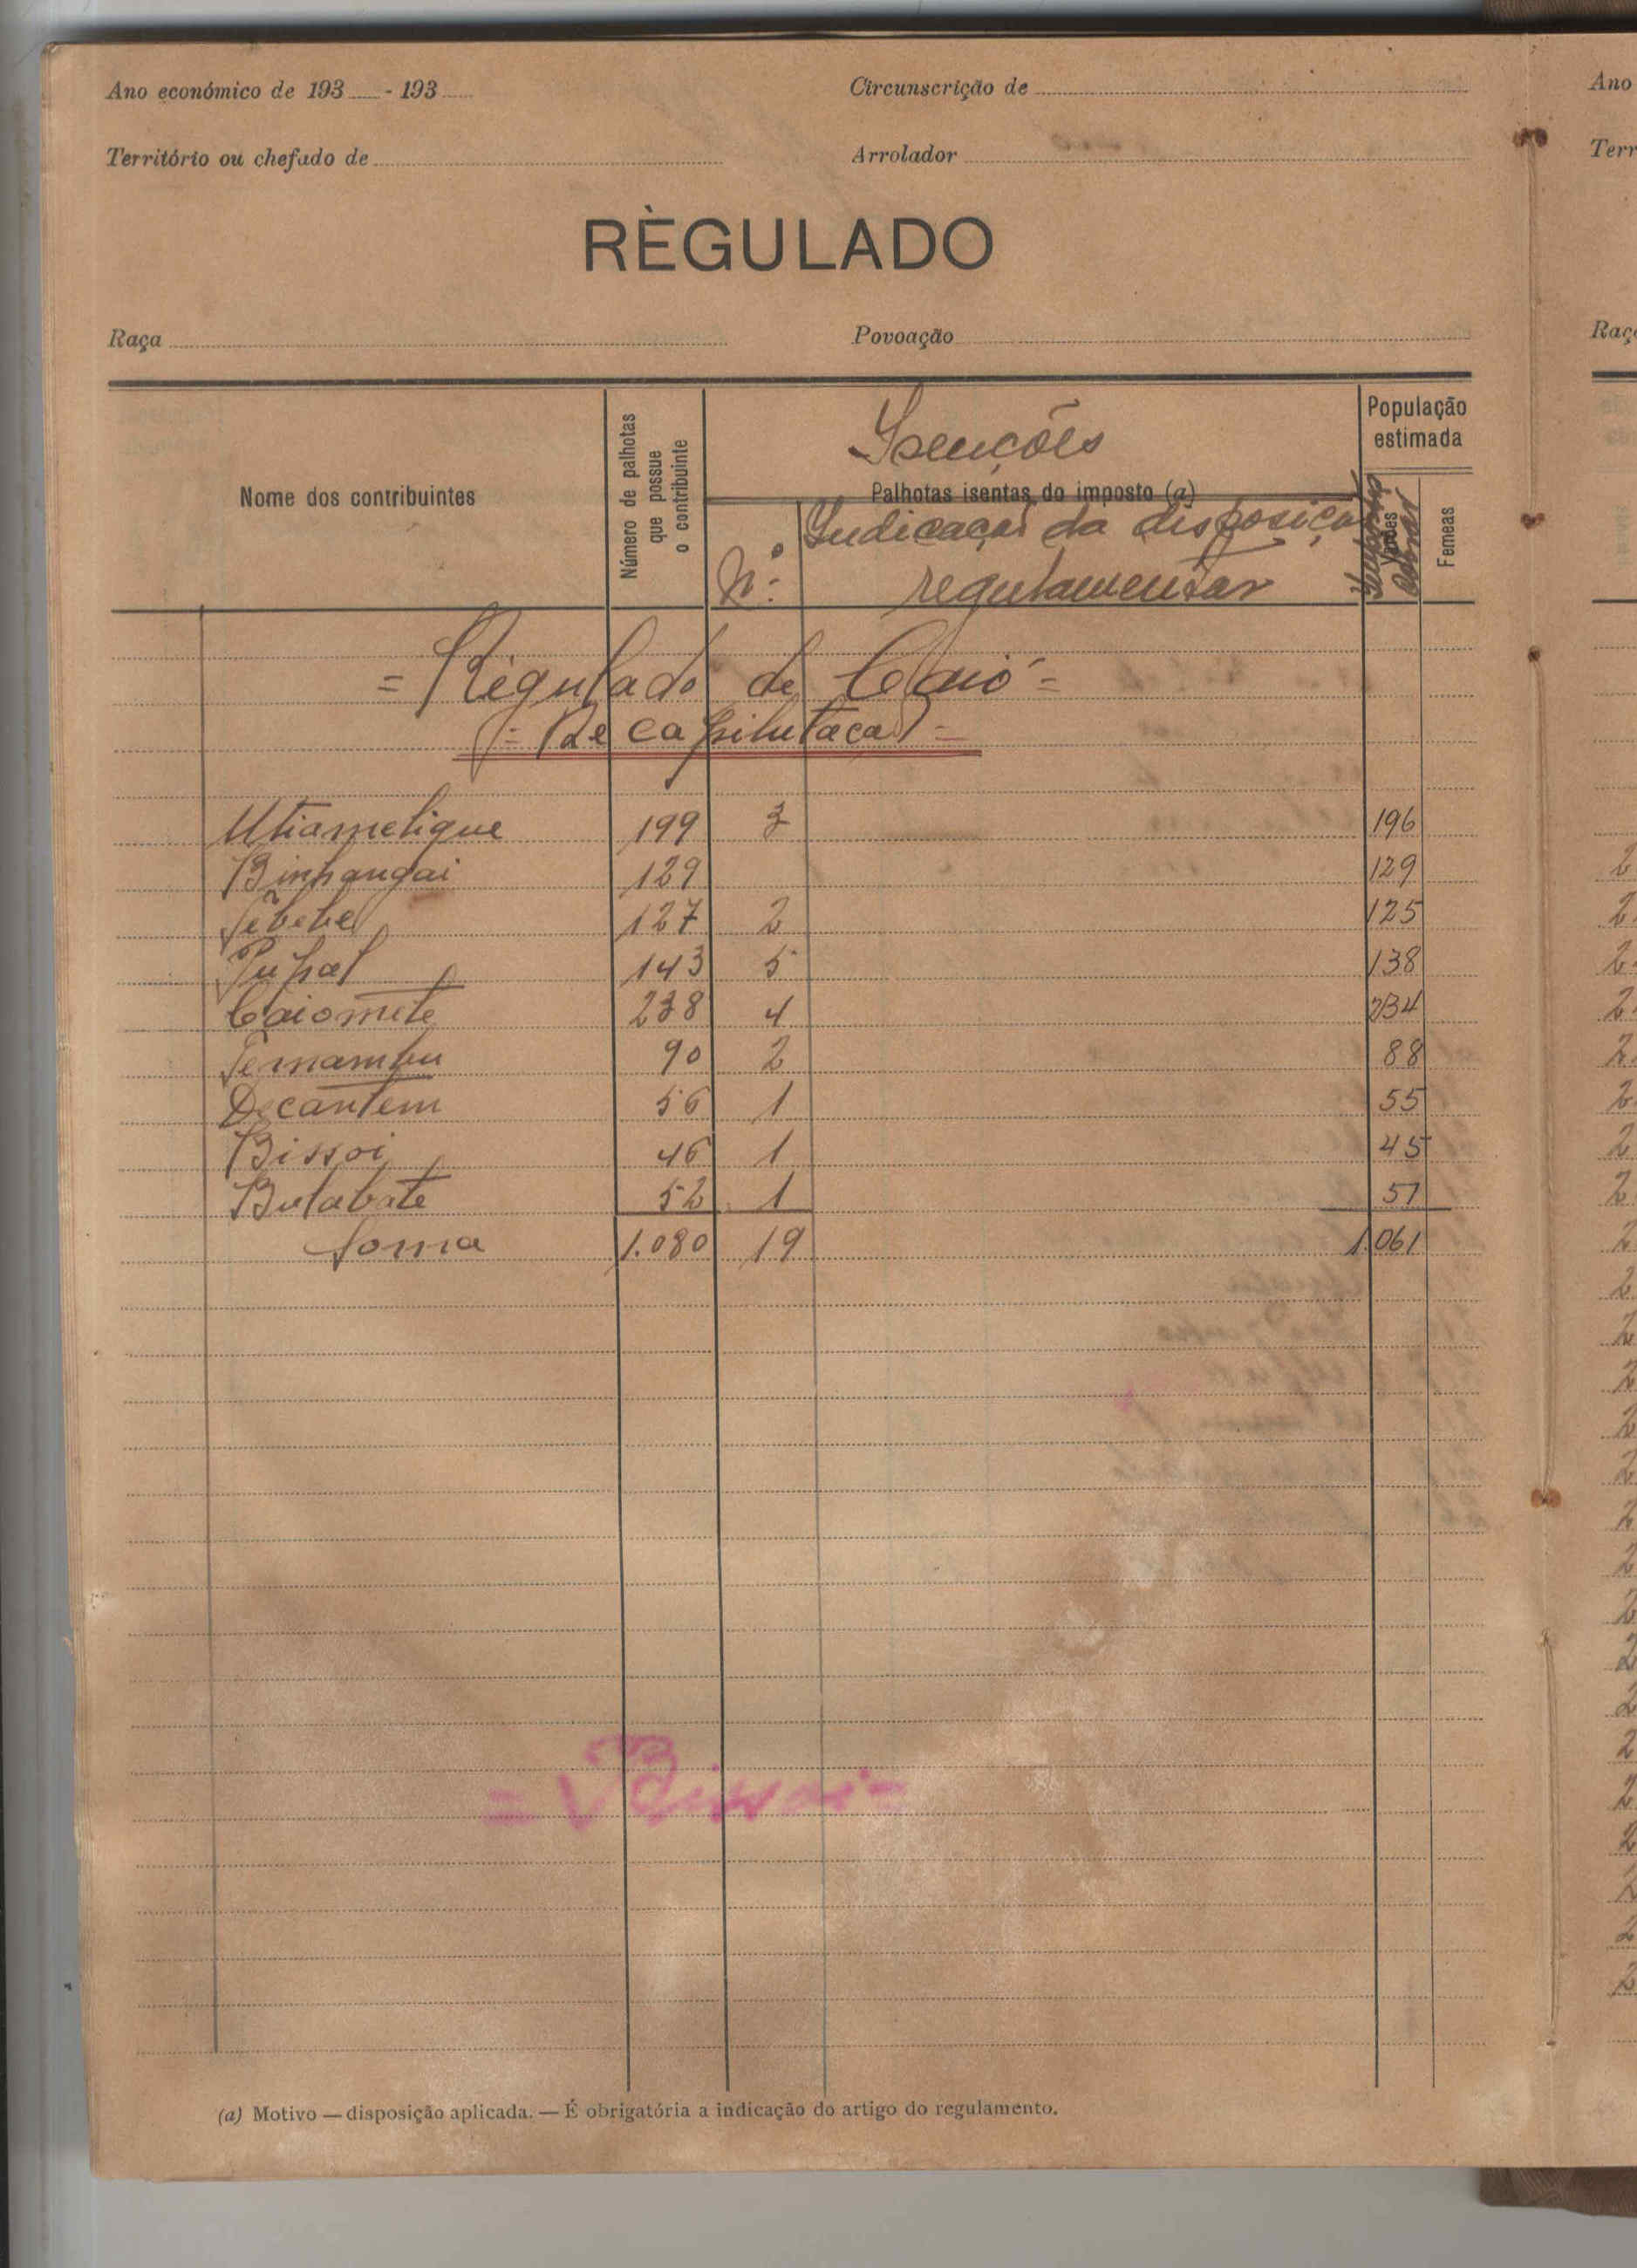 Ano económico de 193 - 193
Circunscrição de
Território ou chefado de
Arrolador
RÈGULADO
Raça
Povoação
Nome dos contribuintes
Número de palhotas que possue o contribuinte
Isenções
Palhotas isentas do imposto (a)
N.º
Indicação da disposição
regulamentar
População estimada
Varões
Femeas
= Régulado de Caió =
= Recapitulação =
Utiamelique 199 3 196
Binhangai 129 129
Tebebe 127 2 125
Pupal 143 5 138
Caiomete 238 4 234
Ternambu 90 2 88
Decantem 56 1 55
Bissoi 46 1 45
Bulabate 52 1 51
Soma 1.080 19 1.061
= Bissoi =
(a) Motivo — disposição aplicada. — É obrigatória a indicação do artigo do regulamento.
Ano
Terr
Raç